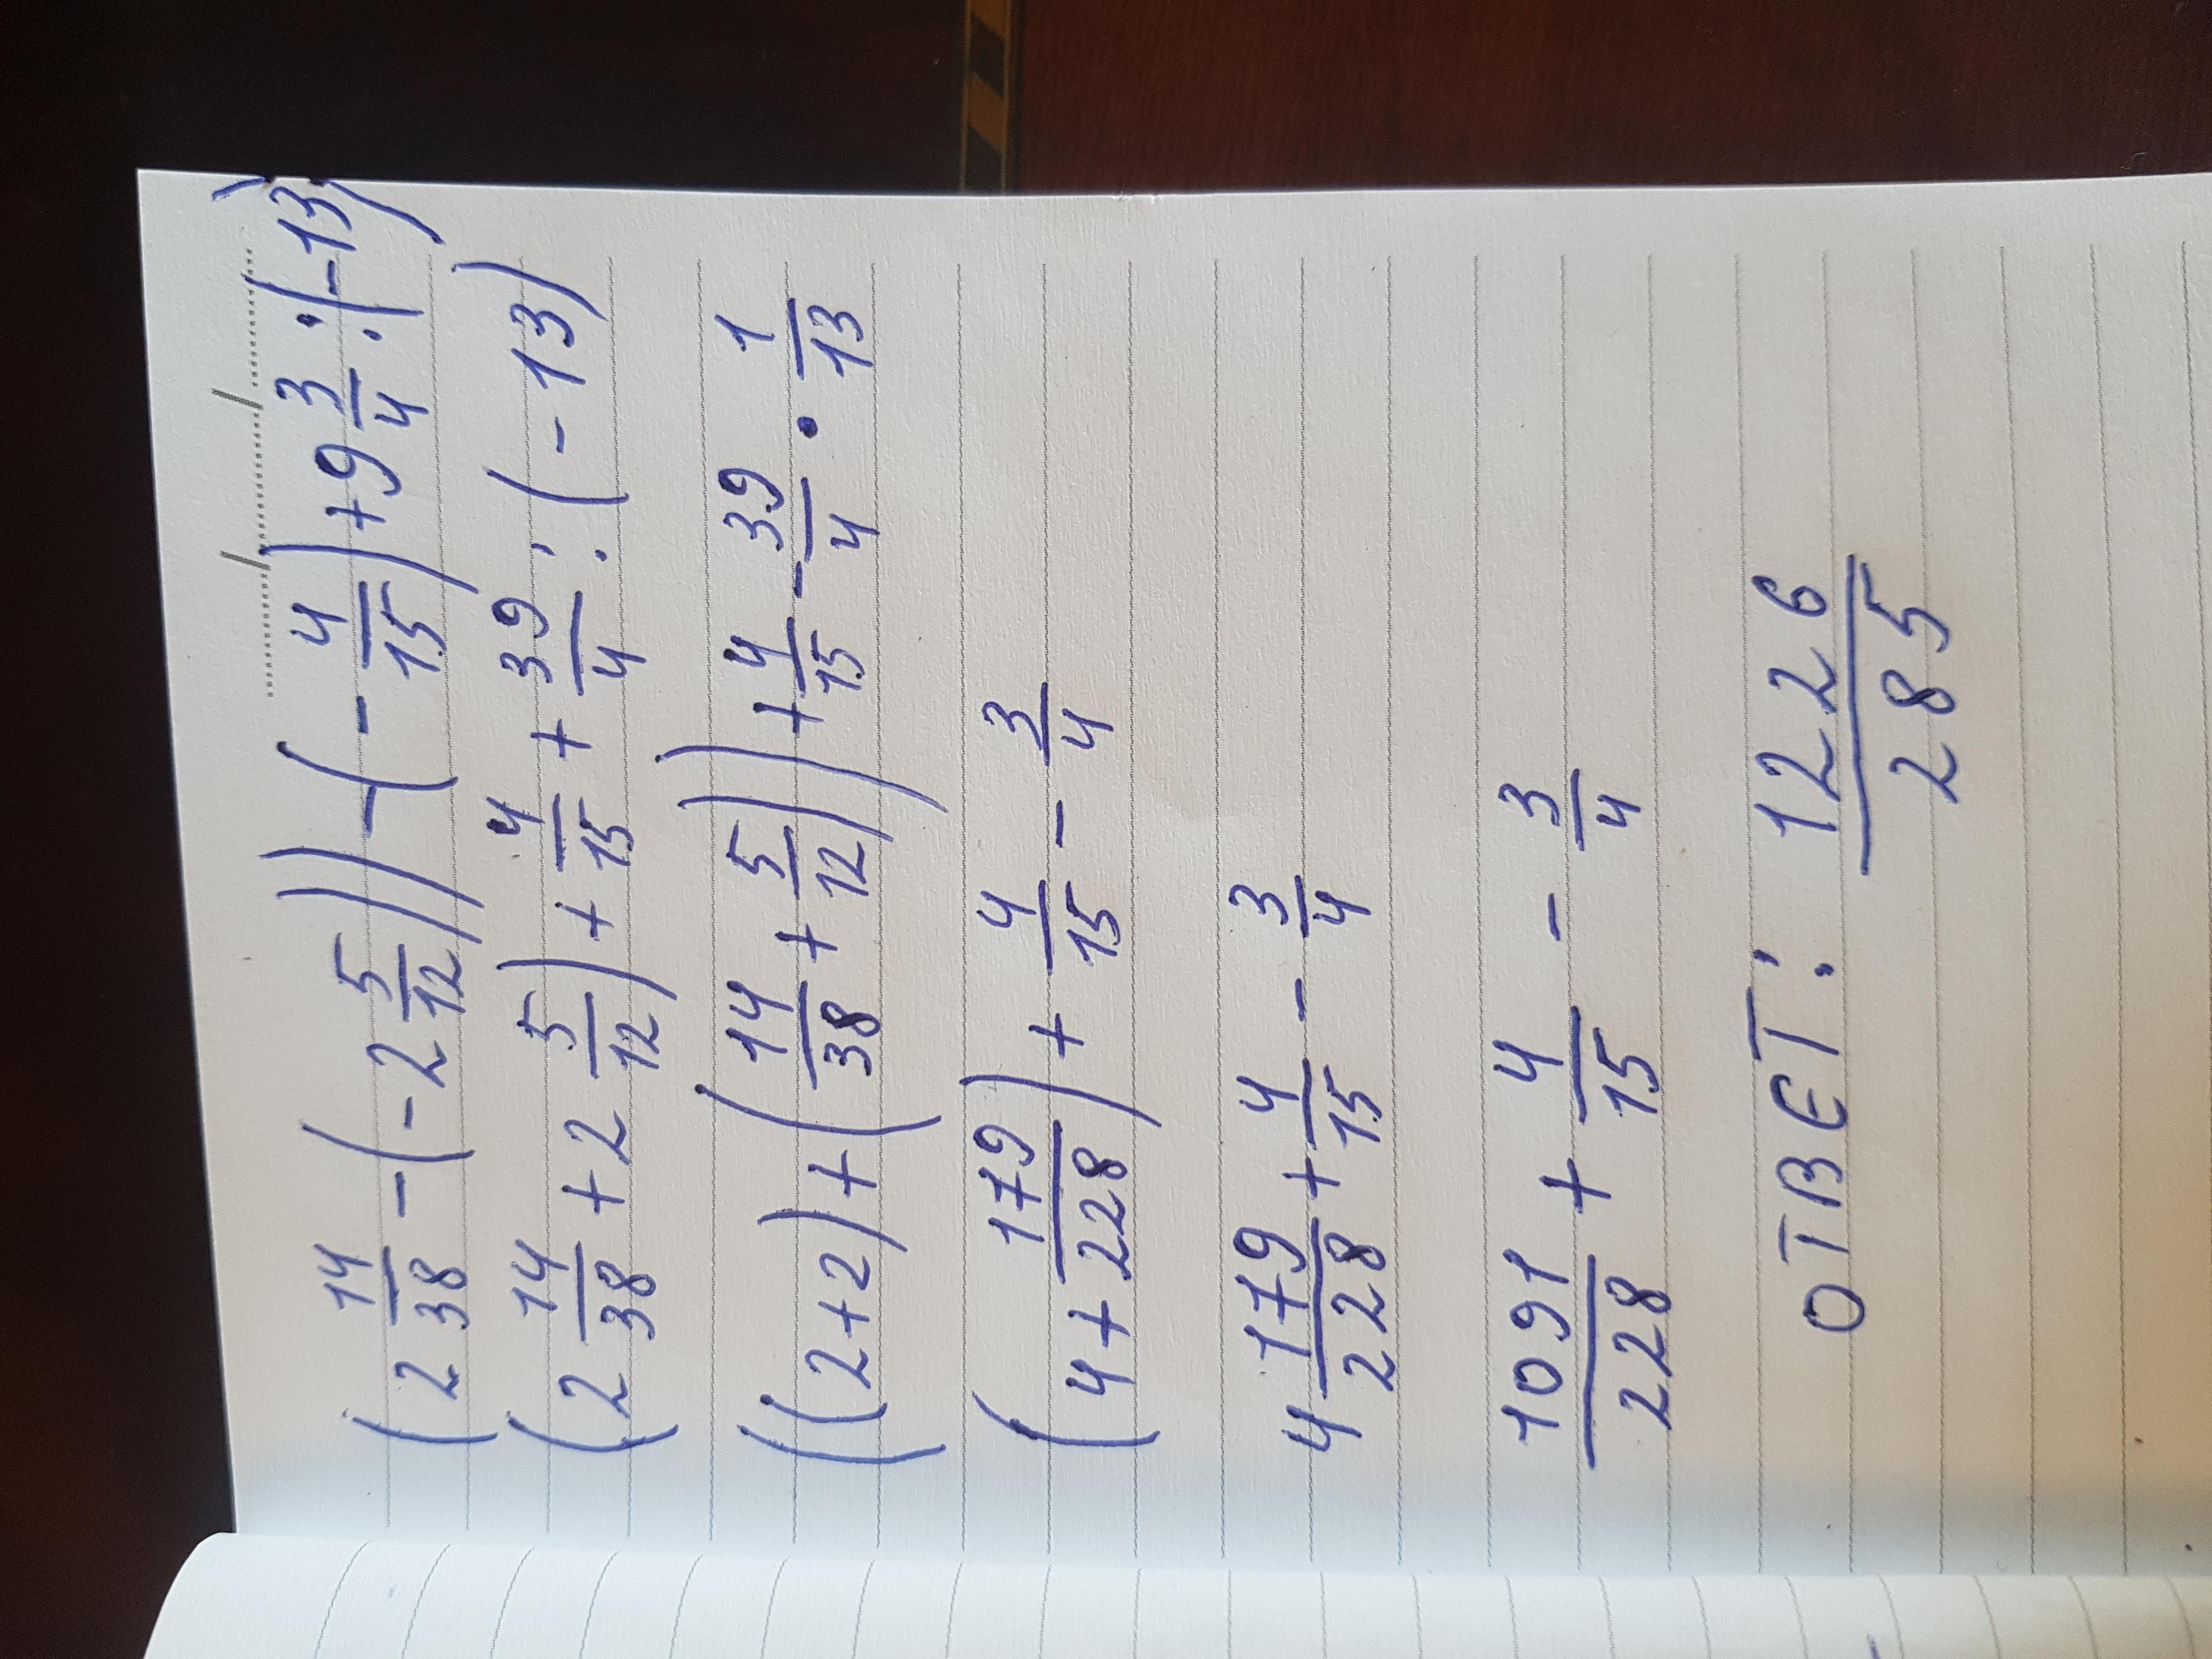 (2 14/38 - (-2 5/12)) - (-4/15) + 9 3/4 : (-13)
(2 14/38 + 2 5/12) + 4/15 + 39/4 : (-13)
((2+2) + (14/38 + 5/12)) + 4/15 - 39/4 • 1/13
(4 + 179/228) + 4/15 - 3/4
4 179/228 + 4/15 - 3/4
1091/228 + 4/15 - 3/4
ОТВЕТ: 1226/285